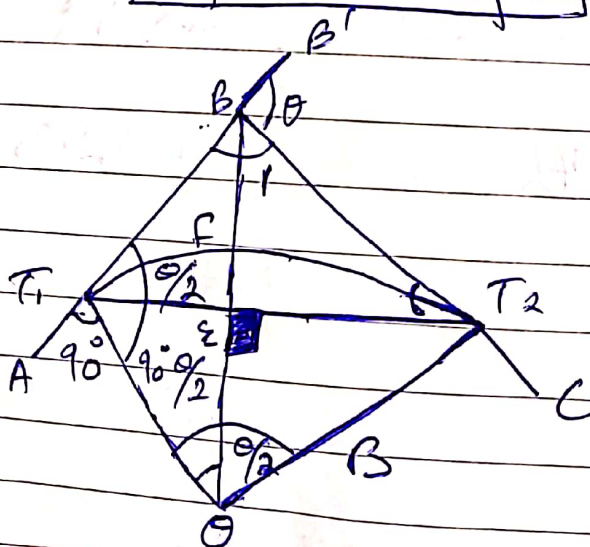 B'
B θ
I
F
T₁ θ/2 T₂
E
A 90° 90° θ/2 C
θ/2 B
O